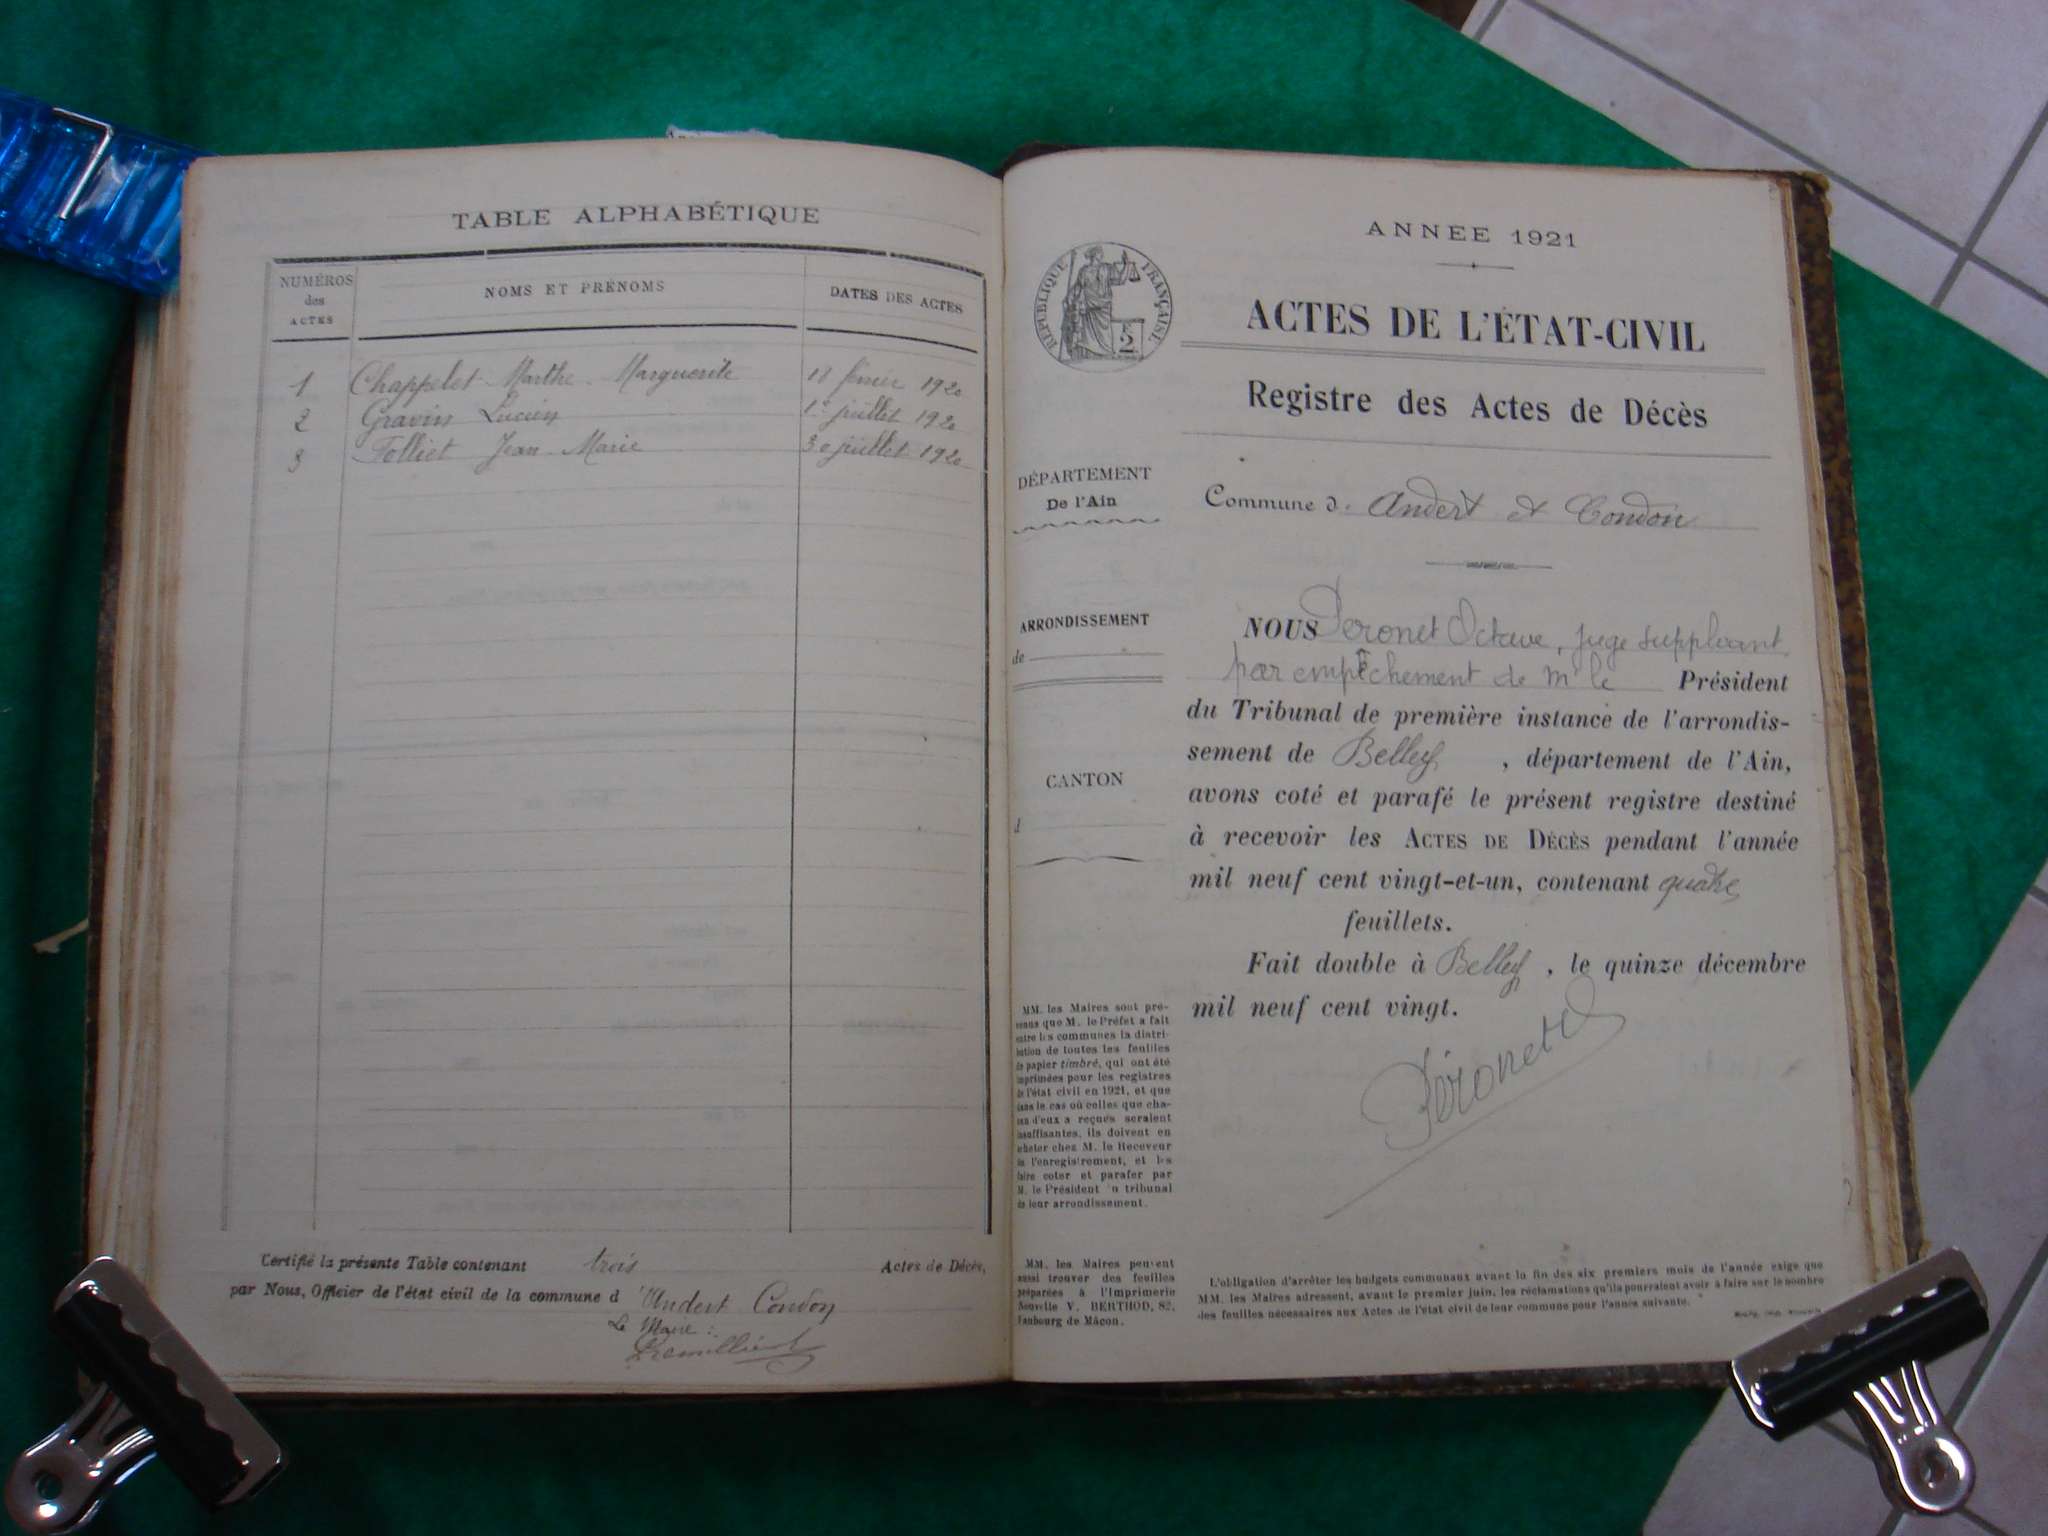 TABLE ALPHABÉTIQUE
NUMÉROS
des
ACTES
NOMS ET PRÉNOMS
DATES DES ACTES
1 Chappelet Marthe Marguerite 18 février 1920
2 Gravin Lucien 1er juillet 1920
3 Folliet Jean Marie 30 juillet 1920
Certifié la présente Table contenant trois Actes de Décès,
par Nous, Officier de l'état civil de la commune d'Andert Condon
Le Maire :
ANNEE 1921
RÉPUBLIQUE FRANÇAISE
E
2
ACTES DE L'ÉTAT-CIVIL
Registre des Actes de Décès
DÉPARTEMENT
De l'Ain
Commune d. Andert et Condon
ARRONDISSEMENT
de
CANTON
d
NOUS Péronet Octave, juge suppléant
par empêchement de Mr le Président
du Tribunal de première instance de l'arrondis-
sement de Belley, département de l'Ain,
avons coté et parafé le présent registre destiné
à recevoir les ACTES DE DÉCÈS pendant l'année
mil neuf cent vingt-et-un, contenant quatre
feuillets.
Fait double à Belley, le quinze décembre
mil neuf cent vingt.
Péronet
MM. les Maires sont pré-
venus que M. le Préfet a fait
entre les communes la distri-
bution de toutes les feuilles
de papier timbré, qui ont été
imprimées pour les registres
de l'état civil en 1921, et que
dans le cas où celles que cha-
cun d'eux a reçues seraient
insuffisantes, ils doivent en
acheter chez M. le Receveur
de l'enregistrement, et les
faire coter et parafer par
M. le Président du tribunal
de leur arrondissement.
MM. les Maires peuvent
aussi trouver des feuilles
préparées à l'Imprimerie
Nouvelle V. BERTHOD, 82,
Faubourg de Mâcon.
L'obligation d'arrêter les budgets communaux avant la fin des six premiers mois de l'année exige que
MM. les Maires adressent, avant le premier juin, les réclamations qu'ils pourraient avoir à faire sur le nombre
des feuilles nécessaires aux Actes de l'état civil de leur commune pour l'année suivante.